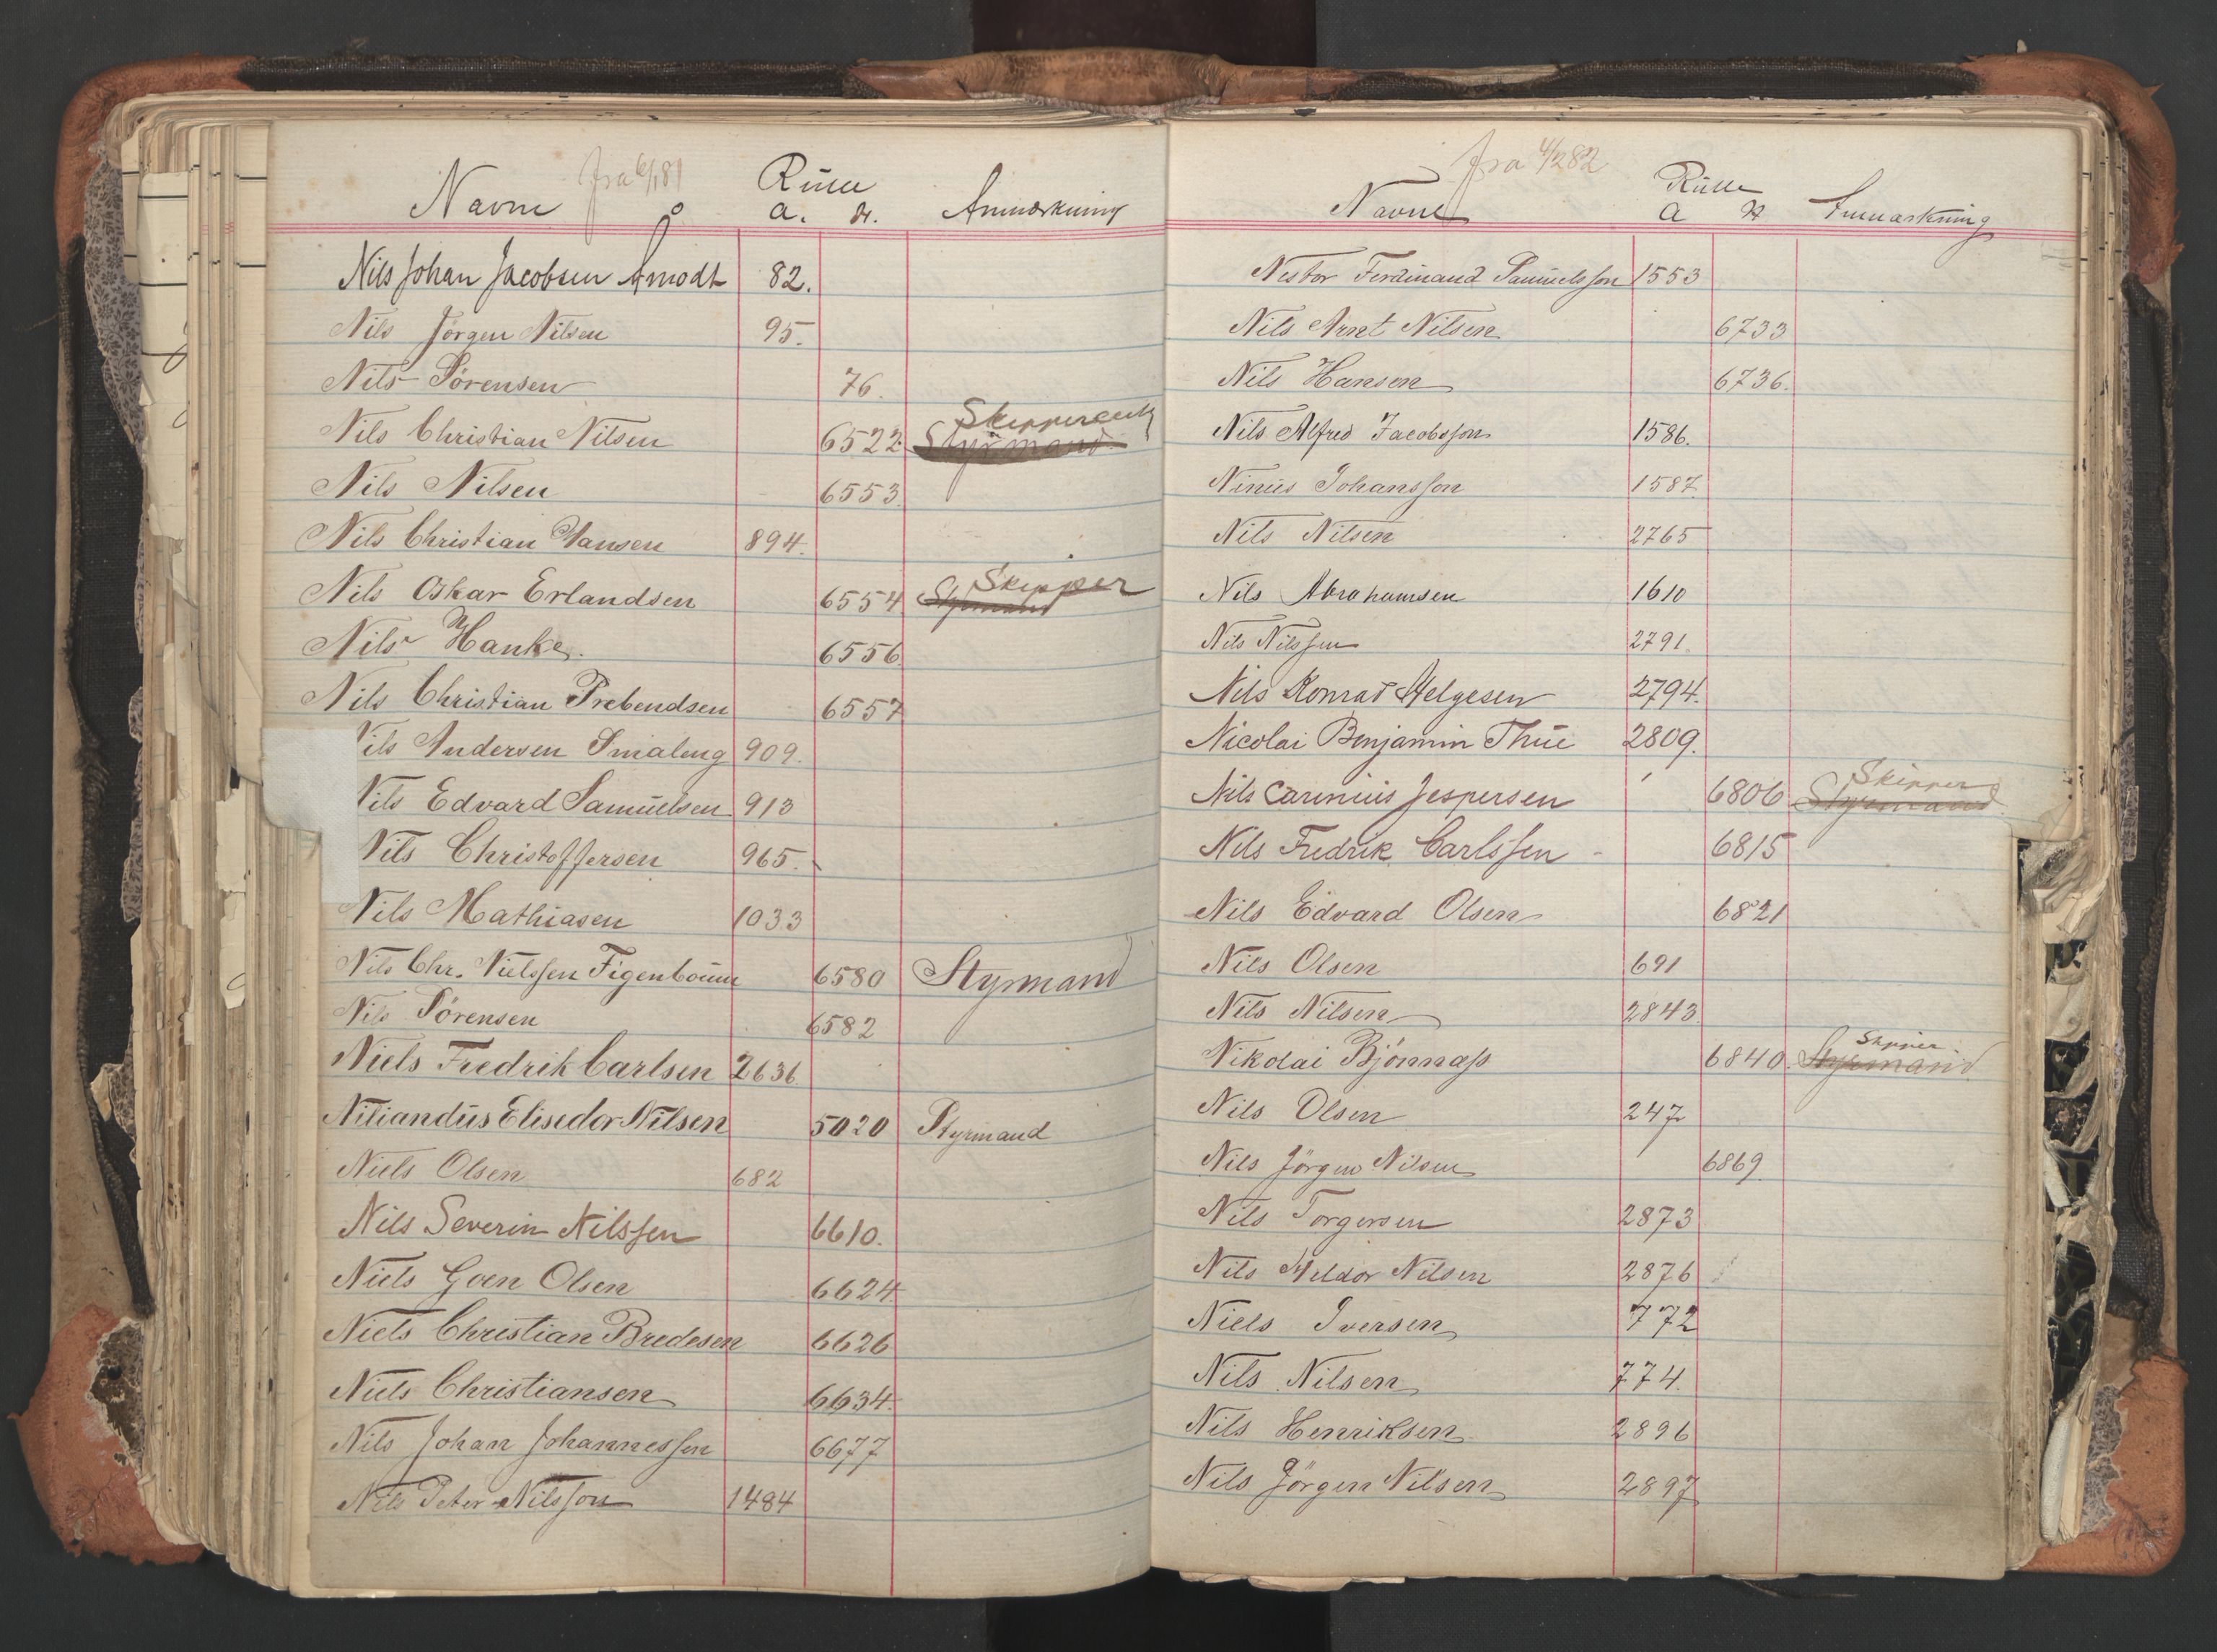 Navne fra 6/181 Rulle Anmærkning
a. H.
Nils Johan Jacobsen Åmodt 82.
Nils Jörgen Nilsen 95.
Nils Sörensen 76.
Skippereed
Nils Christian Nilsen 6522 Styrmand
Nils Nilsen 6553.
Nils Christian Hansen 894.
Skipper
Nils Oskar Erlandsen 6554 Styrmand
Nils Hanke. 6556
Nils Christian Prebendsen 6557
Nils Andersen Smaleng 909.
Nils Edvard Samuelsen 913
Nils Christoffersen 965.
Nils Mathiasen 1033
Nils Chr. Nielssen Figenboum 6580 Styrmand
Nils Sörensen 6582
Niels Fredrik Carlsen 2636
Niliandus Elisedor Nilsen 5020 Styrmand
Niels Olsen 682
Nils Severin Nilssen 6610.
Niels Goen Olsen 6624
Niels Christian Bredesen 6626
Niels Christiansen 6634.
Nils Johan Johannessen 6677
Nils Peter Nilsson 1484
fra 4/282
Navne Rulle Anmærkning
a H
Nestor Ferdinand Samuelsson 1553
Nils Arnt Nilsen 6733
Nils Hansen 6736.
Nils Alfred Jacobsson 1586.
Ninius Johansson 1587.
Nils Nilsen 2765
Nils Abrahamsen 1610
Nils Nilssen 2791.
Nils Konrad Helgesen 2794.
Nicolai Benjamin Thue 2809.
Skipper
Nils Carinius Jespersen 6806 Styrmand
Nils Fredrik Carlssen 6815
Nils Edvard Olsen 6821
Nils Olsen 691
Nils Nilsen 2843.
Skipper
Nikolai Bjönnass 6840. Styrmand
Nils Olsen 247
Nils Jörgen Nilsen 6869.
Nils Torgersen 2873
Nils Meldor Nilsen 2876
Niels Iversen 772
Nils Nilsen 774.
Nils Henriksen 2896
Nils Jörgen Nilsen 2897